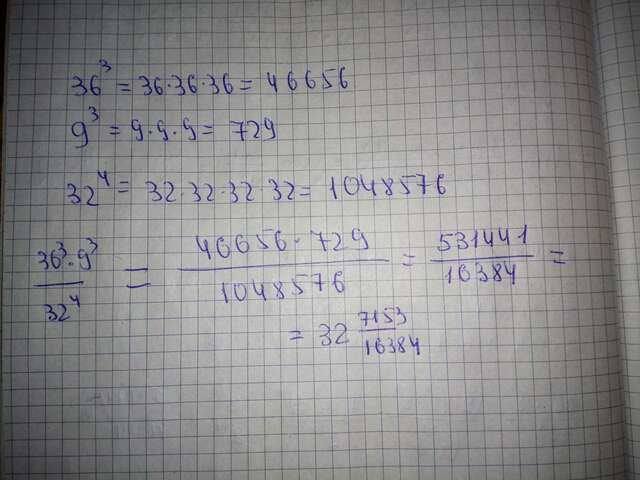 36³ = 36·36·36 = 46656
9³ = 9·9·9 = 729
32⁴ = 32·32·32·32 = 1048576
36³·9³/32⁴ = 46656·729/1048576 = 531441/16384 =
= 32 7153/16384